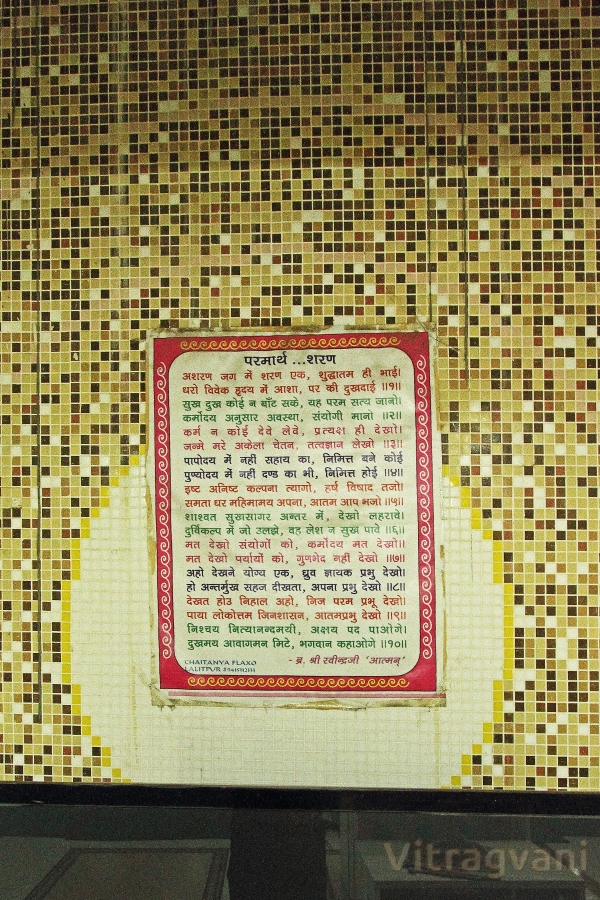 परमार्थ ...शरण
अशरण जग में शरण एक, शुद्धातम ही भाई।
धरो विवेक हृदय में आशा, पर की दुखदाई ॥१॥
सुख दुख कोई न बाँट सके, यह परम सत्य जानो।
कर्मोदय अनुसार अवस्था, संयोगी मानो ॥२॥
कर्म न कोई देवे लेवे, प्रत्यक्ष ही देखो।
जन्मे मरे अकेला चेतन, तत्वज्ञान लेखो ॥३॥
पापोदय में नहीं सहाय का, निमित्त बने कोई
पुण्योदय में नहीं दण्ड का भी, निमित्त होई ॥४॥
इष्ट अनिष्ट कल्पना त्यागो, हर्ष विषाद तजो।
समता धर महिमामय अपना, आतम आप भजो ॥५॥
शाश्वत सुखसागर अन्तर में, देखो लहरावे।
दुर्विकल्प में जो उलझे, वह लेश न सुख पावे ॥६॥
मत देखो संयोगों को, कर्मोदय मत देखो।
मत देखो पर्यायों को, गुणभेद नहीं देखो ॥७॥
अहो देखने योग्य एक, ध्रुव ज्ञायक प्रभु देखो।
हो अन्तर्मुख सहज दीखता, अपना प्रभु देखो ॥८॥
देखत होउ निहाल अहो, निज परम प्रभू देखो।
पाया लोकोत्तम जिनशासन, आतमप्रभु देखो ॥९॥
निश्चय नित्यानन्दमयी, अक्षय पद पाओगे।
दुखमय आवागमन मिटे, भगवान कहाओगे ॥१०॥
- ब्र. श्री रवीन्द्रजी 'आत्मन्'
CHAITANYA FLAXO
LALITPUR
Vitragvani